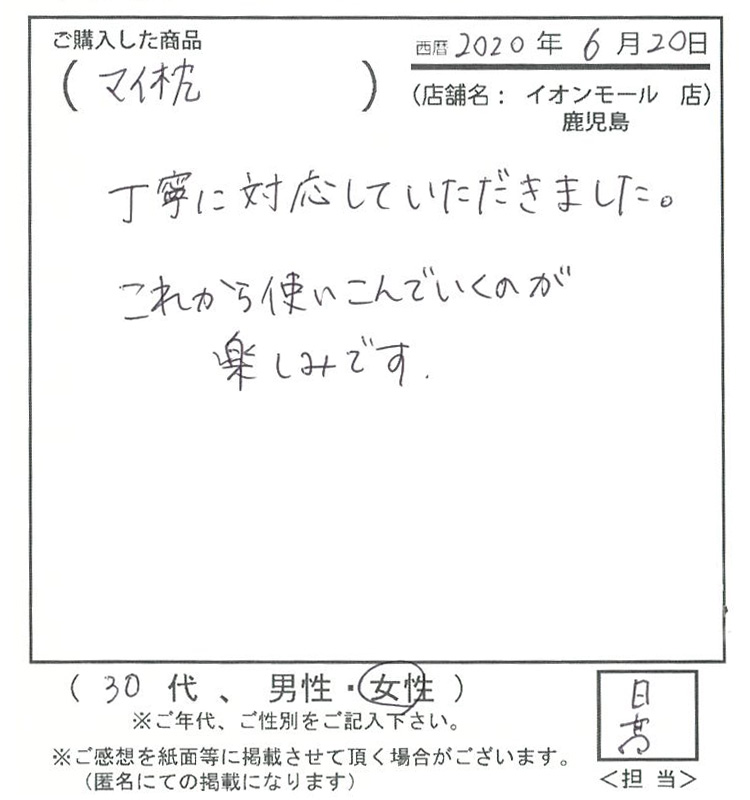 ご購入した商品
西暦 2020 年 6 月 20日
( マイ枕 )
(店舗名： イオンモール 店)
鹿児島
丁寧に対応していただきました。
これから使いこんでいくのが
楽しみです.
( 30 代 、 男性・女性 )
※ご年代、ご性別をご記入下さい。
※ご感想を紙面等に掲載させて頂く場合がございます。
(匿名にての掲載になります)
日
髙
＜担 当＞